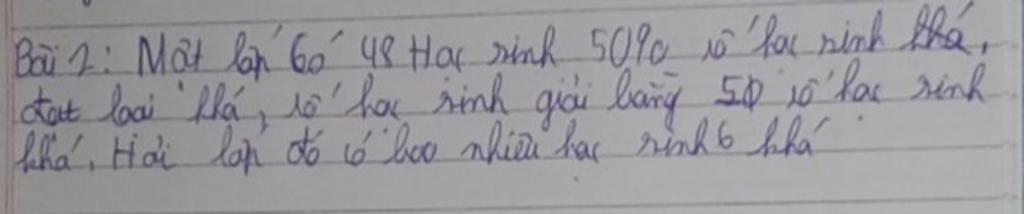 Bài 2: Một lớp có 48 Học sinh 50% số học sinh khá,
đạt loại khá, số học sinh giỏi bằng 50 số học sinh
khá. Hỏi lớp đó có bao nhiêu học sinh khá